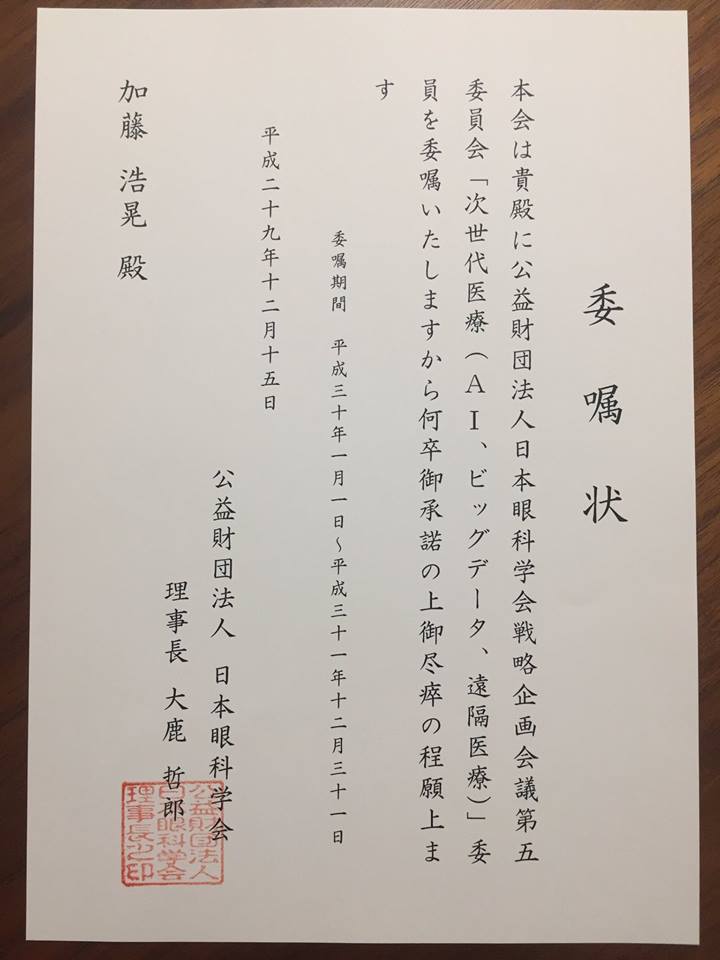 委嘱状
本会は貴殿に公益財団法人日本眼科学会戦略企画会議第五
委員会「次世代医療（ＡＩ、ビッグデータ、遠隔医療）」委
員を委嘱いたしますから何卒御承諾の上御尽瘁の程願上ま
す
委嘱期間　平成三十年一月一日～平成三十一年十二月三十一日
平成二十九年十二月十五日
公益財団法人　日本眼科学会
理事長　大鹿　哲郎
公益財団法人
日本眼科学会
理事長之印
加藤　浩晃　殿